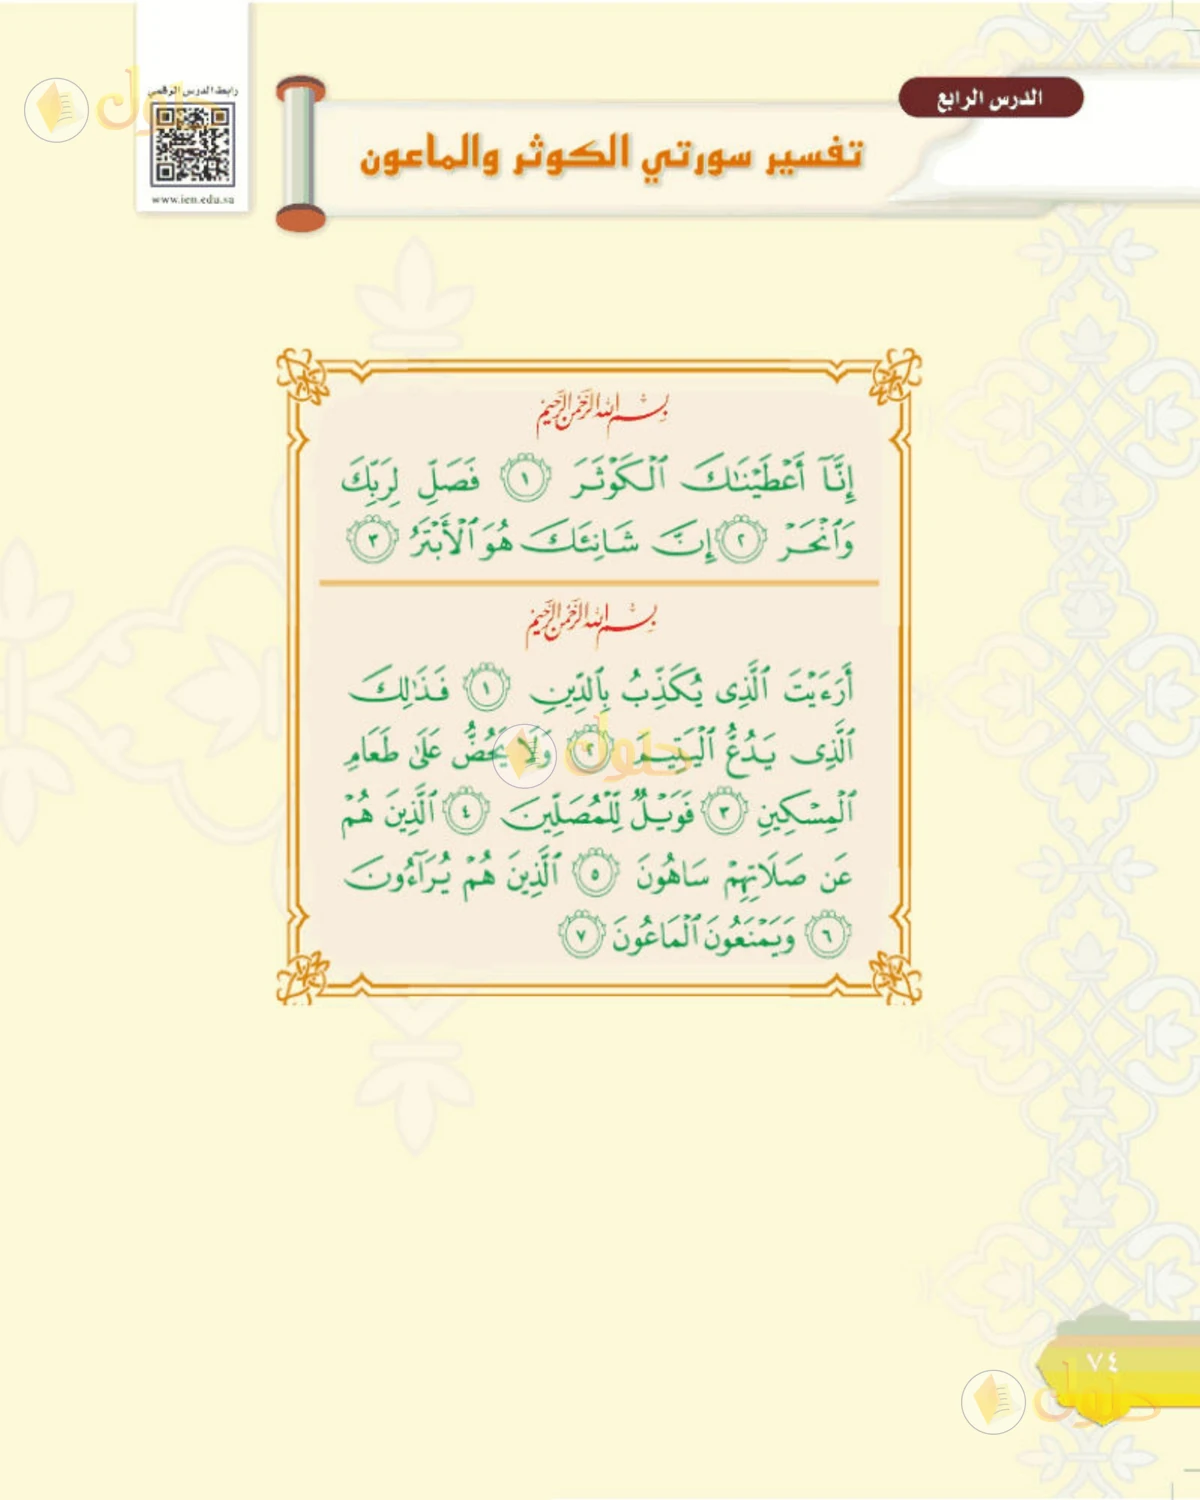 الدرس الرابع
تفسير سورتي الكوثر والماعون
رابط الدرس الرقمي
www.ien.edu.sa
حلول
بِسْمِ اللَّهِ الرَّحْمَٰنِ الرَّحِيمِ
إِنَّآ أَعْطَيْنَٰكَ ٱلْكَوْثَرَ ١ فَصَلِّ لِرَبِّكَ
وَٱنْحَرْ ٢ إِنَّ شَانِئَكَ هُوَ ٱلْأَبْتَرُ ٣
بِسْمِ اللَّهِ الرَّحْمَٰنِ الرَّحِيمِ
أَرَءَيْتَ ٱلَّذِى يُكَذِّبُ بِٱلدِّينِ ١ فَذَٰلِكَ
ٱلَّذِى يَدُعُّ ٱلْيَتِيمَ ٢ وَلَا يَحُضُّ عَلَىٰ طَعَامِ
حلول
ٱلْمِسْكِينِ ٣ فَوَيْلٌ لِّلْمُصَلِّينَ ٤ ٱلَّذِينَ هُمْ
عَن صَلَاتِهِمْ سَاهُونَ ٥ ٱلَّذِينَ هُمْ يُرَآءُونَ
٦ وَيَمْنَعُونَ ٱلْمَاعُونَ ٧
٧٤
حلول